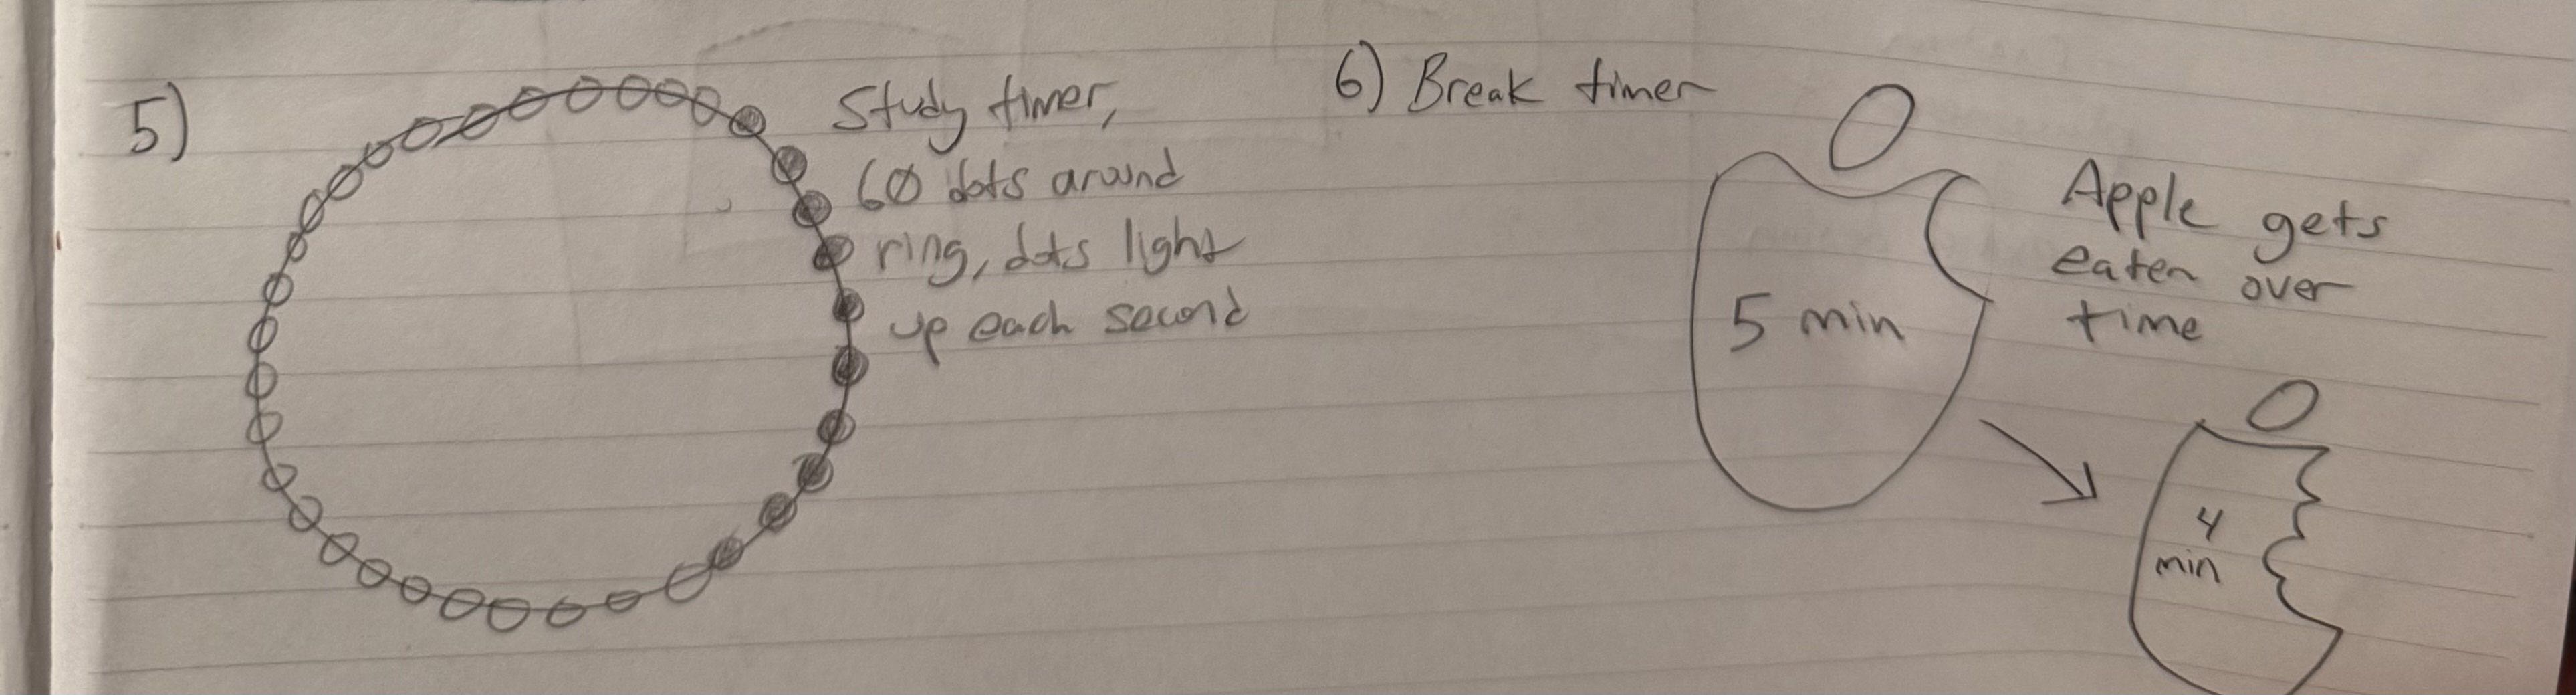 5)
Study timer,
60 dots around
ring, dots light
up each second
6) Break timer
5 min
Apple gets
eaten over
time
4
min